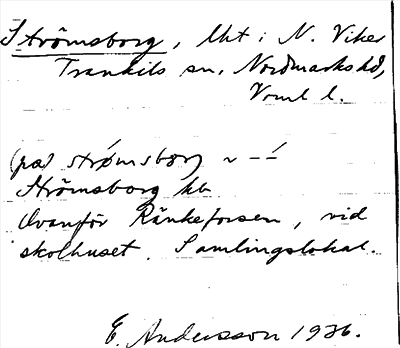 Strömsborg, lht i N. Viker
Trankils sn, Nordmarks hd,
Vrml l.
(på) strǿmsbǫrj ~ – ´–
Strömsborg hb
Ovanför Ränkeforsen, vid
skolhuset. Samlingslokal.
E. Andersson 1936.